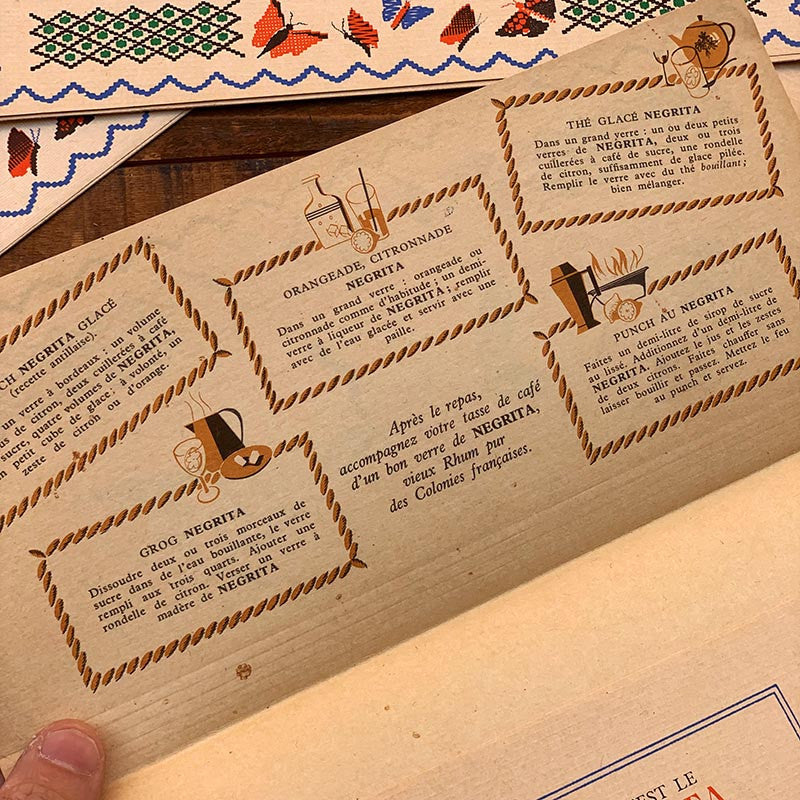 THÉ GLACÉ NEGRITA
Dans un grand verre : un ou deux petits
verres de NEGRITA, deux ou trois
cuillerées à café de sucre, une rondelle
de citron, suffisamment de glace pilée.
Remplir le verre avec du thé bouillant ;
bien mélanger.
ORANGEADE, CITRONNADE
NEGRITA
Dans un grand verre : orangeade ou
citronnade comme d'habitude ; un demi-
verre à liqueur de NEGRITA ; remplir
avec de l'eau glacée et servir avec une
paille.
PUNCH AU NEGRITA
Faites un demi-litre de sirop de sucre
au lissé. Additionnez d'un demi-litre de
NEGRITA. Ajoutez le jus et les zestes
de deux citrons. Faites chauffer sans
laisser bouillir et passez. Mettez le feu
au punch et servez.
CH NEGRITA GLACÉ
(recette antillaise).
un verre à bordeaux : un volume
us de citron, deux cuillerées à café
sucre, quatre volumes de NEGRITA,
n petit cube de glace ; à volonté, un
zeste de citron ou d'orange.
Après le repas,
accompagnez votre tasse de café
d'un bon verre de NEGRITA,
vieux Rhum pur
des Colonies françaises.
GROG NEGRITA
Dissoudre deux ou trois morceaux de
sucre dans de l'eau bouillante, le verre
rempli aux trois quarts. Ajouter une
rondelle de citron. Verser un verre à
madère de NEGRITA
EST LE